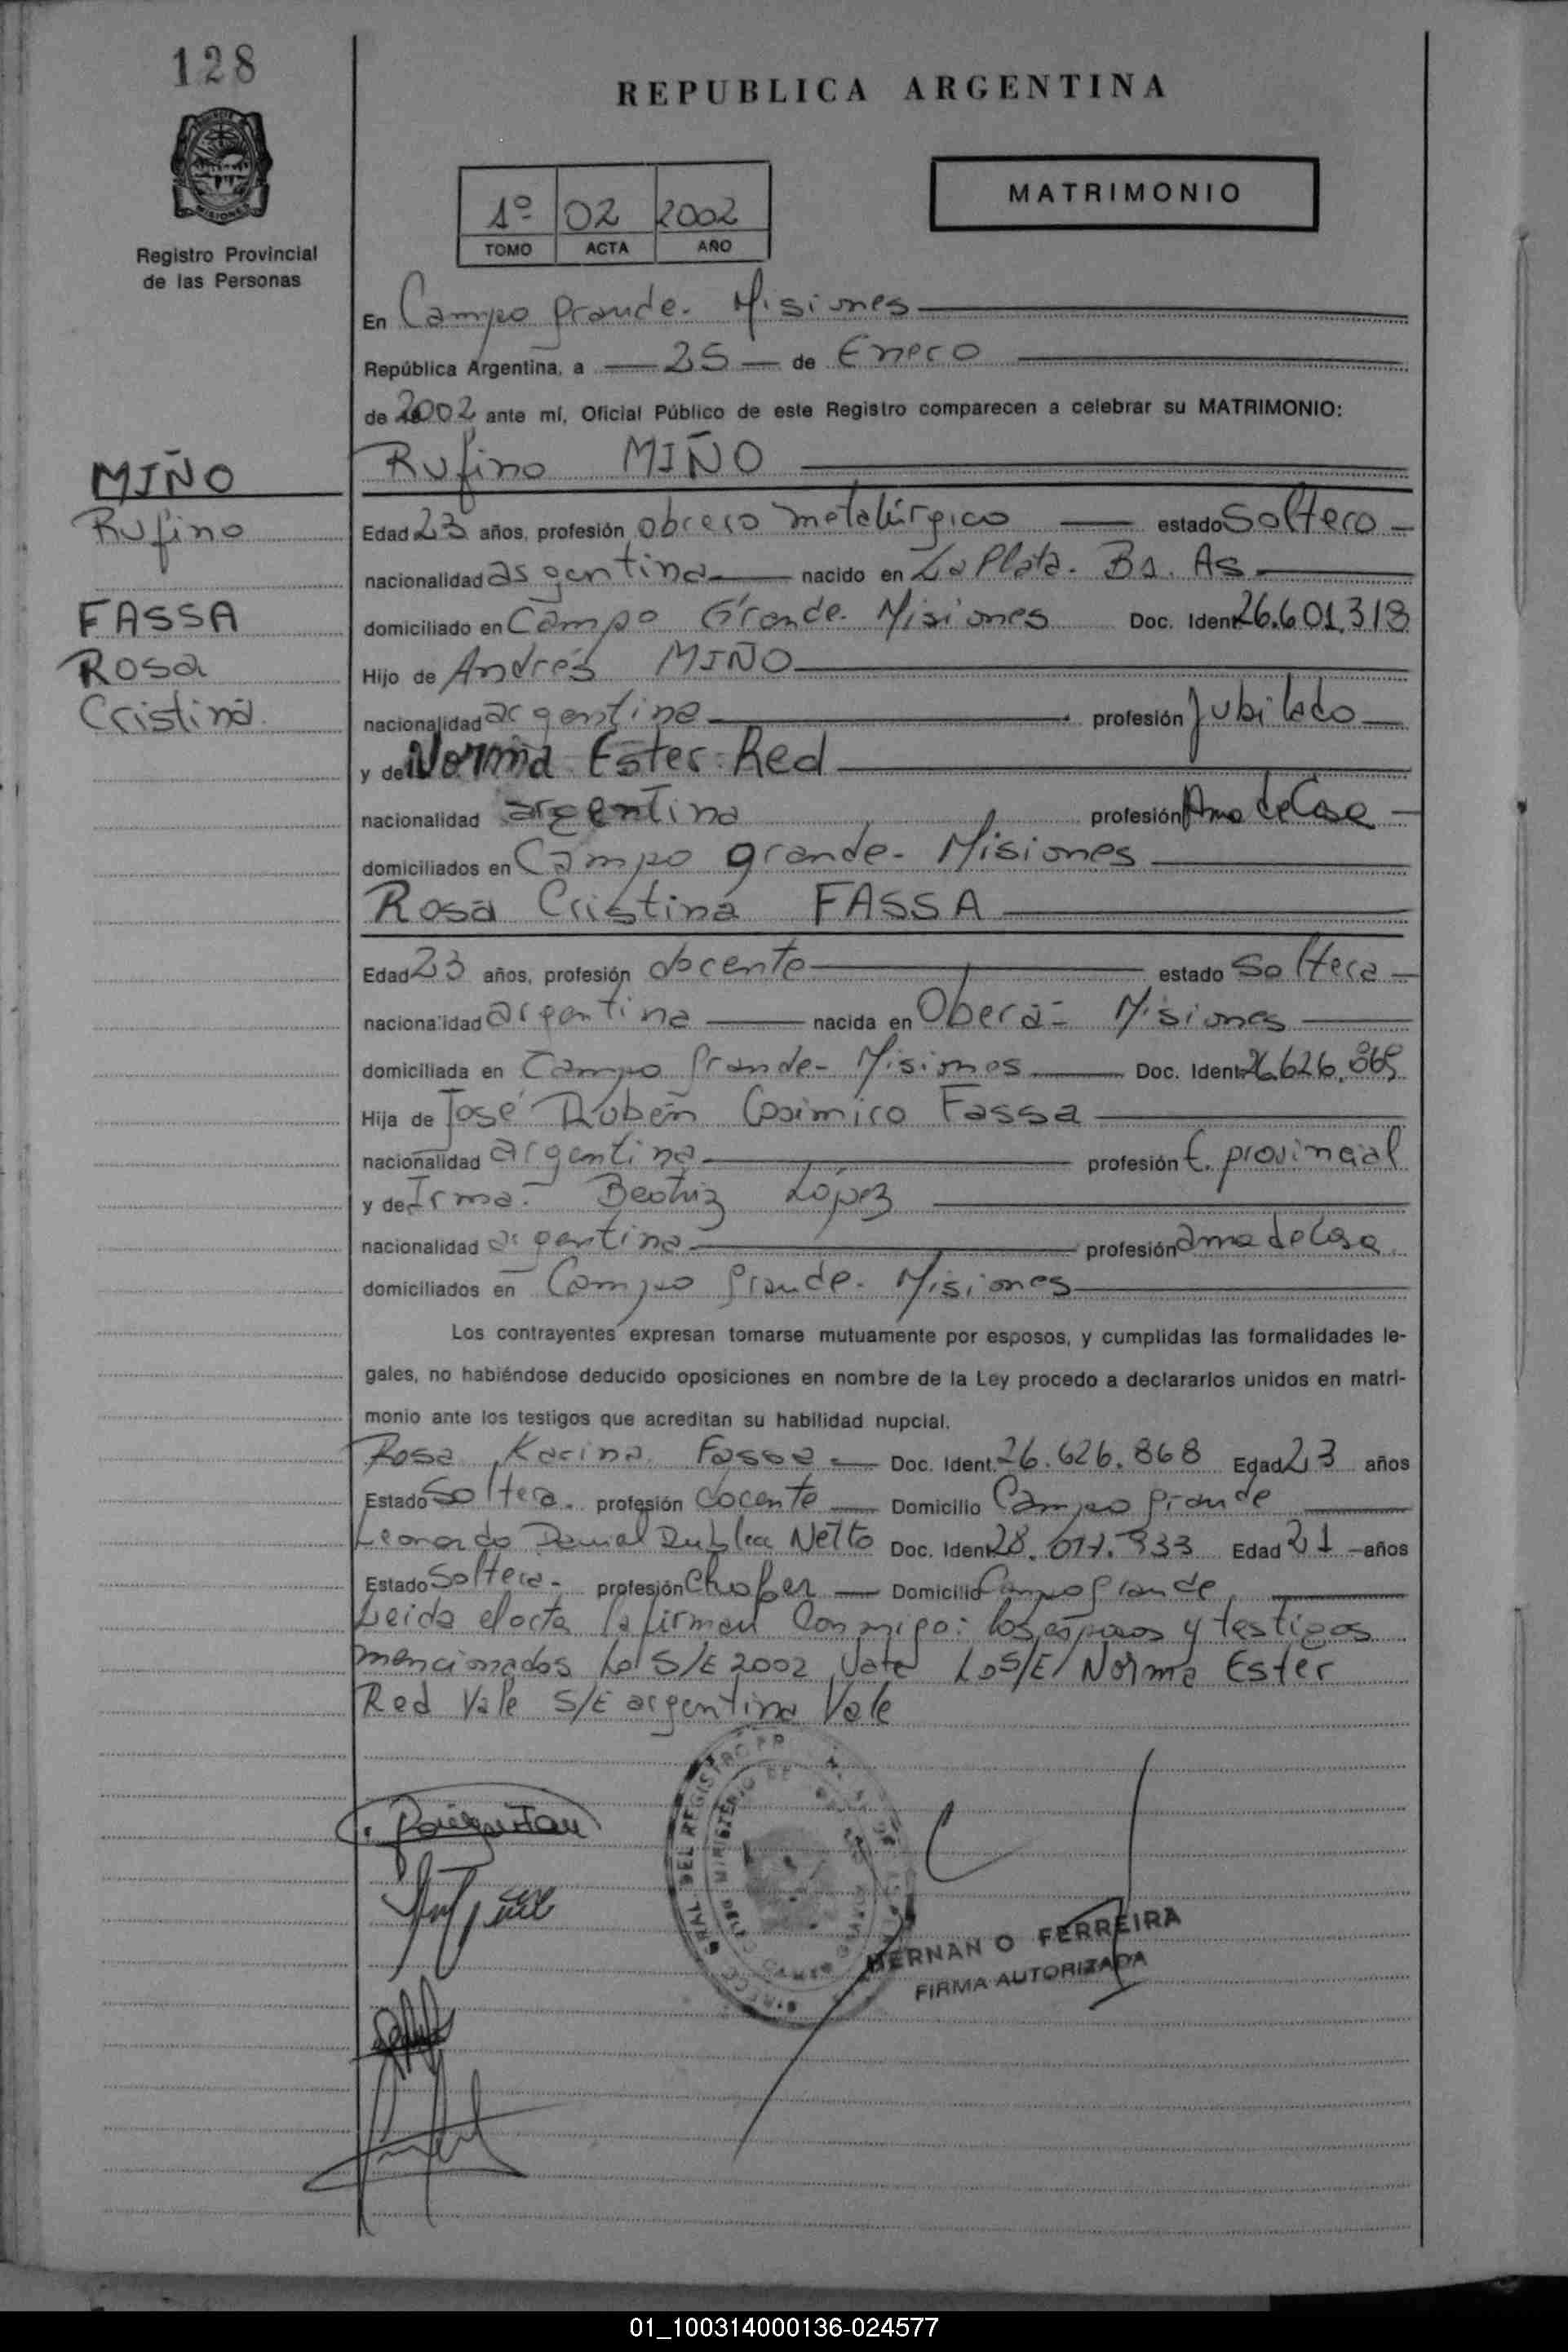 128
REPUBLICA ARGENTINA
MISIONES
Registro Provincial
de las Personas
1º 02 2002
TOMO ACTA AÑO
MATRIMONIO
En Campo grande. Misiones
República Argentina, a 25 de Enero
de 2002 ante mí, Oficial Público de este Registro comparecen a celebrar su MATRIMONIO:
MIÑO
Rufino
FASSA
Rosa
Cristina.
Rufino MIÑO
Edad 23 años, profesión obrero metalúrgico estado Soltero
nacionalidad argentina nacido en La Plata. Bs. As
domiciliado en Campo Grande. Misiones Doc. Ident. 26.601.318
Hijo de Andrés MIÑO
nacionalidad argentina profesión Jubilado
y de Norma Ester Red
nacionalidad argentina profesión Ama de Casa
domiciliados en Campo grande. Misiones
Rosa Cristina FASSA
Edad 23 años, profesión docente estado Soltera
nacionalidad argentina nacida en Oberá - Misiones
domiciliada en Campo grande - Misiones Doc. Ident. 26.626.869
Hija de José Rubén Fassa
nacionalidad argentina profesión E. provincial
y de Irma. Beatriz López
nacionalidad argentina profesión ama de Casa
domiciliados en Campo grande. Misiones
Los contrayentes expresan tomarse mutuamente por esposos, y cumplidas las formalidades le-
gales, no habiéndose deducido oposiciones en nombre de la Ley procedo a declararlos unidos en matri-
monio ante los testigos que acreditan su habilidad nupcial.
Rosa Karina Fassa Doc. Ident. 26.626.868 Edad 23 años
Estado Soltera. profesión docente Domicilio Campo grande
Leonardo Daniel Netto Doc. Ident. 28.017.933 Edad 21 años
Estado Soltero. profesión Chofer Domicilio Campo grande
Leida el acta la firman Conmigo: los esposos y testigos
mencionados Lo S/E 2002 Vale Lo S/E Norma Ester
Red Vale S/E argentina Vale
DEL REGISTRO
MINISTERIO DE
HERNAN O FERREIRA
FIRMA AUTORIZADA
01_100314000136-024577